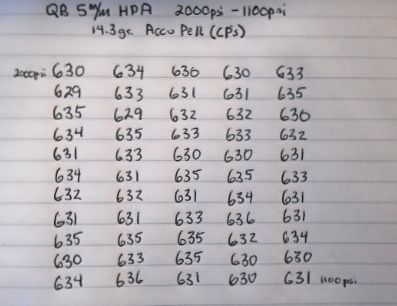 QB 5m/m HPA 2000psi - 1100psi
14.3gr. Accu Pell (CP's)
2000psi 630 634 636 630 633
629 633 631 631 635
635 629 632 632 636
634 635 633 633 632
631 633 630 630 631
634 631 635 635 633
632 632 631 634 631
631 631 633 636 631
635 635 635 632 634
630 633 635 630 630
634 636 631 630 631 1100psi